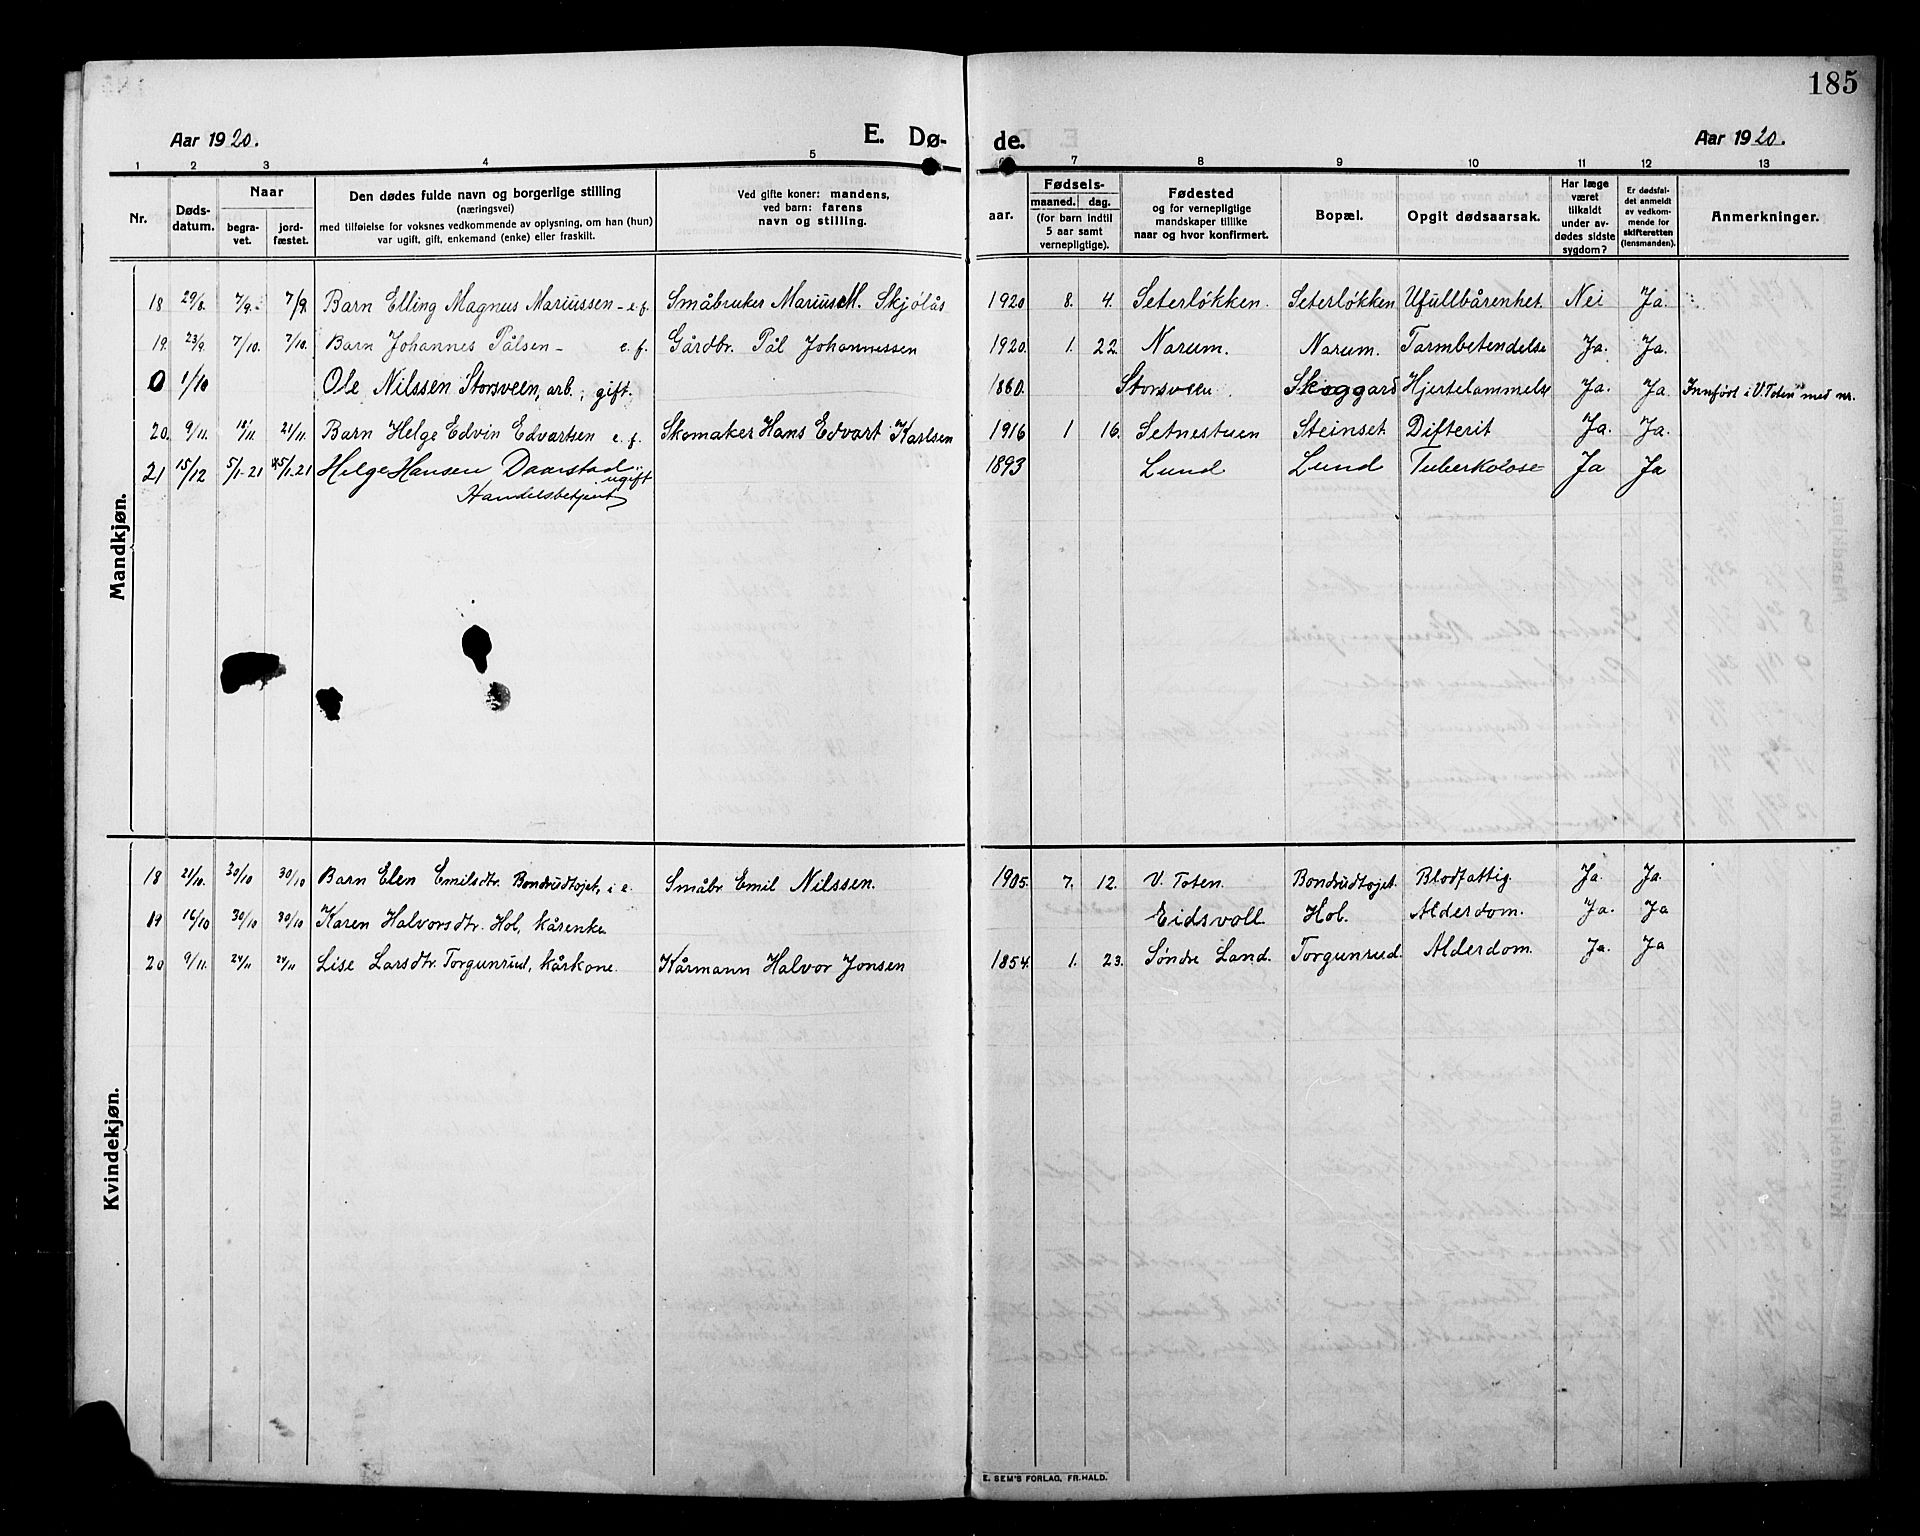 185
Aar 1920.
E. Dø-
de.
Aar 1920.
1 2 3 4 5 6 7 8 9 10 11 12 13
Nr.
Døds-
datum.
Naar
begra-
vet.
jord-
fæstet.
Den dødes fulde navn og borgerlige stilling
(næringsvei)
med tilføielse for voksnes vedkommende av oplysning, om han (hun)
var ugift, gift, enkemand (enke) eller fraskilt.
Ved gifte koner: mandens,
ved barn: farens
navn og stilling.
Fødsels-
aar.
maaned.
dag.
(for barn indtil
5 aar samt
vernepligtige).
Fødested
og for vernepligtige
mandskaper tillike
naar og hvor konfirmert.
Bopæl.
Opgit dødsaarsak.
Har læge
været
tilkaldt
under av-
dødes sidste
sygdom?
Er dødsfal-
det anmeldt
av vedkom-
mende for
skifteretten
(lensmanden).
Anmerkninger.
Mandkjøn.
18 29/8. 7/9. 7/9. Barn Elling Magnus Mariussen - e.f. Småbruker Marius M. Skjølås 1920 8. 4. Seterløkken. Seterløkken Ufullbårenhet. Nei Ja.
19. 23/9. 7/10. 7/10. Barn Johannes Pålsen - e.f. Gårdbr. Pål Johannessen 1920. 1. 22. Narum. Narum. Tarmbetendelse Ja. Ja.
0 1/10 Ole Nilssen Storsveen, arb., gift. 1860. Storsveen. Skoggard Hjertelammelse Ja. Ja. Innført i V. Toten med nr.
20. 9/11. 12/11. 21/11. Barn Helge Edvin Edvartsen e.f. Skomaker Hans Edvart Karlsen 1916 1 16. Setnestuen Steinset. Difterit Ja. Ja.
21 15/12 5/1-21 5/1.21 Helge Hansen Daarstad ugift 1893 Lund Lund Tuberkolose Ja Ja
Handelsbetjent
Kvindekjøn.
18 21/10. 30/10 30/10 Barn Elen Emilsdtr. Bondrudtojet, i e. Småbr. Emil Nilssen. 1905. 7. 12. V. Toten. Bondrudtojet. Blodfattig. Ja. Ja.
19 16/10 30/10 30/10 Karen Halvorsdtr. Hol, kårenke Eidsvoll Hol. Alderdom. Ja. Ja
20 9/11. 24/11 24/11 Lise Larsdtr. Torgunrud, kårkone. Kårmann Halvor Jonsen 1854. 1. 23. Søndre Land. Torgunrud. Alderdom. Ja. Ja
E. SEM'S FORLAG, FR.HALD.